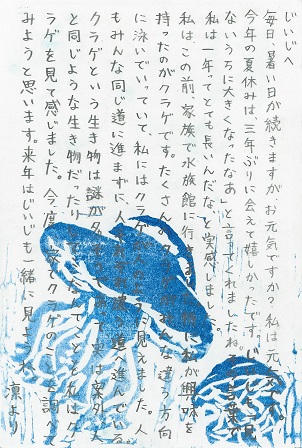 じいじへ
毎日、暑い日が続きますが、お元気ですか？私は元気です。
今年の夏休みは、三年ぶりに会えて嬉しかったです。
ないうちに大きくなったなあ」と言ってくれましたね。その言葉
私は一年ってとても長いんだなと実感しました。
私は、この前、家族で水族館に行きま 私が興味を
持ったのがクラゲです。たくさん 違う方向
に泳いでいっていて、私にはクラゲが 見えました。人
もみんな同じ道に進まずに、人 道へ進んでいる
クラゲという生き物は謎が多 は案外人
と同じような生き物だったり なんて 私はク
ラゲを見て感じました。今度 でクラゲのことを調べて
みようと思います。来年はじいじも一緒に見よ 凛より